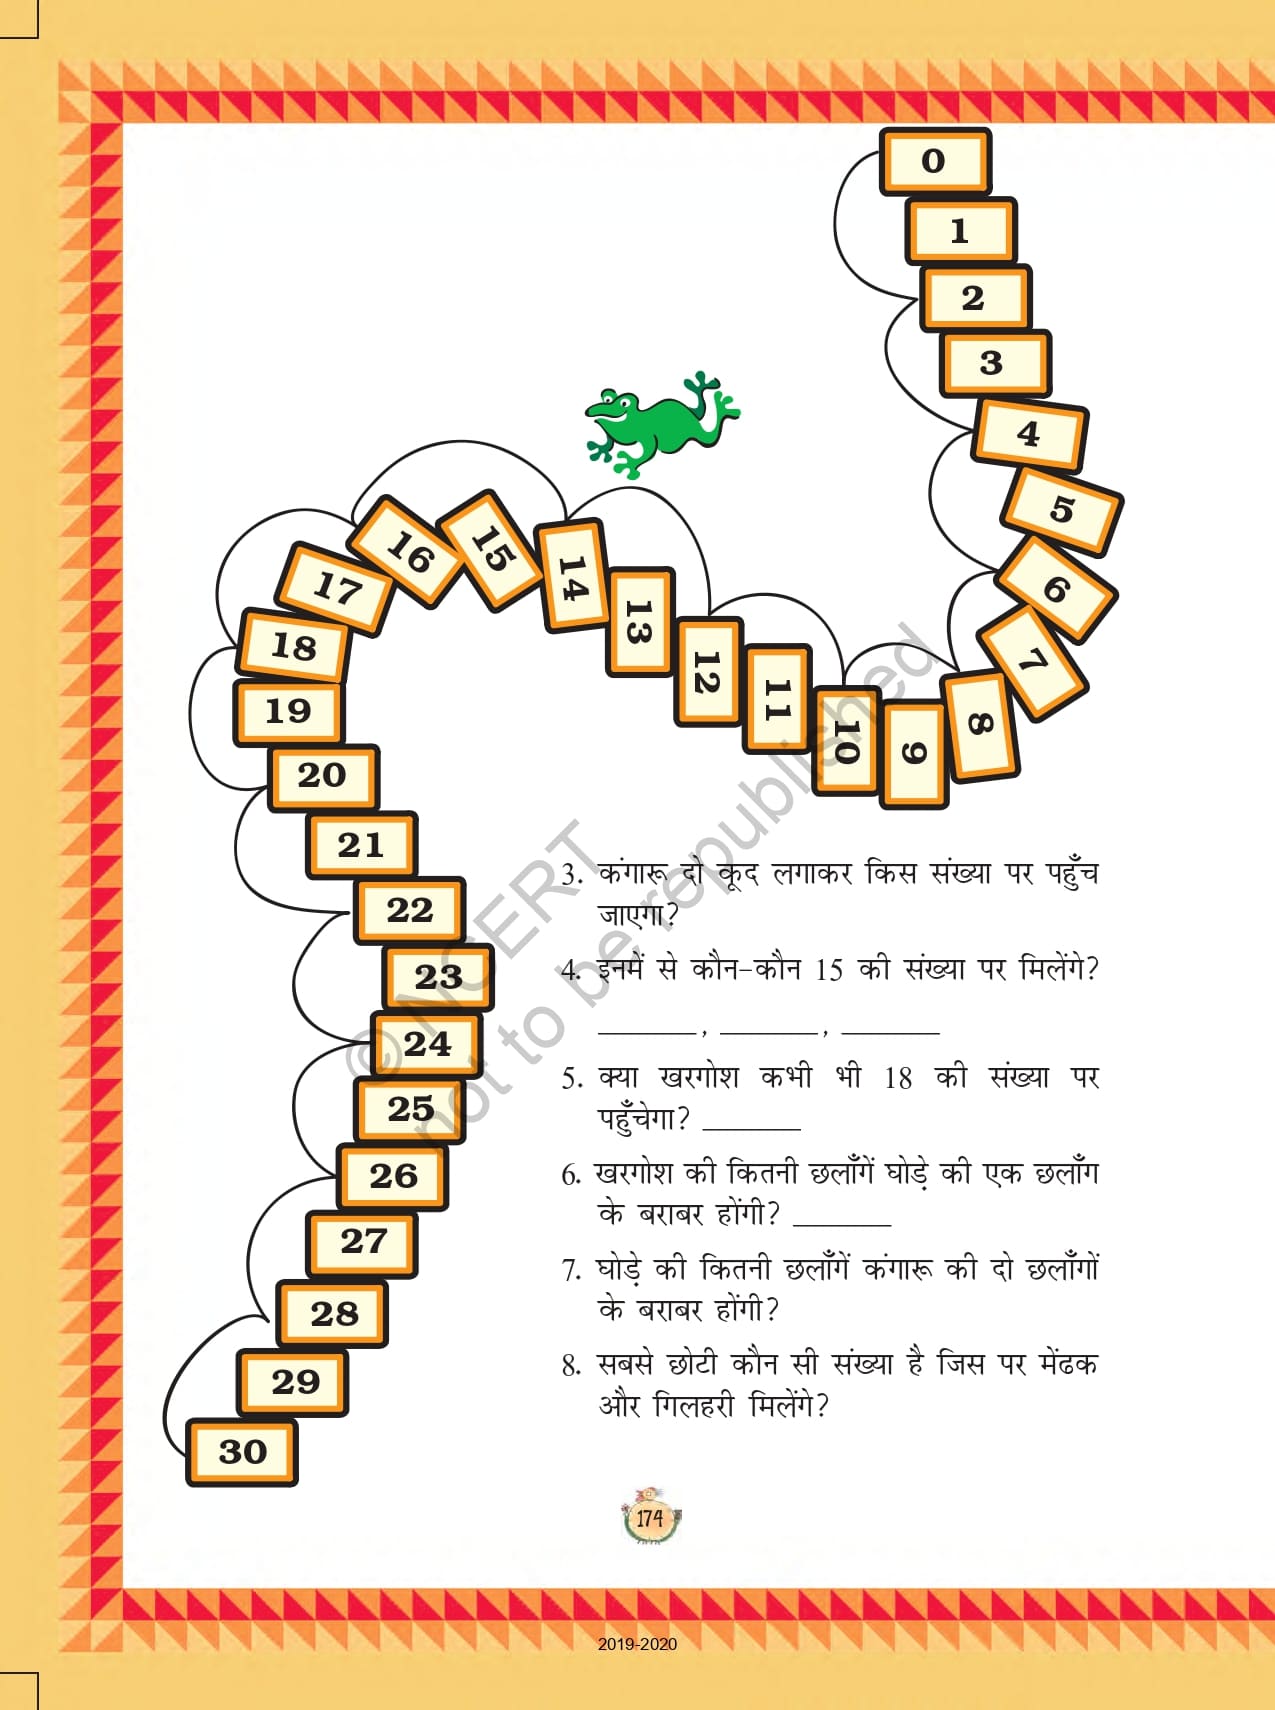 0
1
2
3
4
5
6
7
8
9
10
11
12
13
14
15
16
17
18
19
20
21
22
23
24
25
26
27
28
29
30
3. कंगारू दो कूद लगाकर किस संख्या पर पहुँच
जाएगा?
4. इनमें से कौन-कौन 15 की संख्या पर मिलेंगे?
________, ________, ________
5. क्या खरगोश कभी भी 18 की संख्या पर
पहुँचेगा? ________
6. खरगोश की कितनी छलाँगें घोड़े की एक छलाँग
के बराबर होंगी? ________
7. घोड़े की कितनी छलाँगें कंगारू की दो छलाँगों
के बराबर होंगी?
8. सबसे छोटी कौन सी संख्या है जिस पर मेंढक
और गिलहरी मिलेंगे?
© NCERT
not to be republished
174
2019-2020